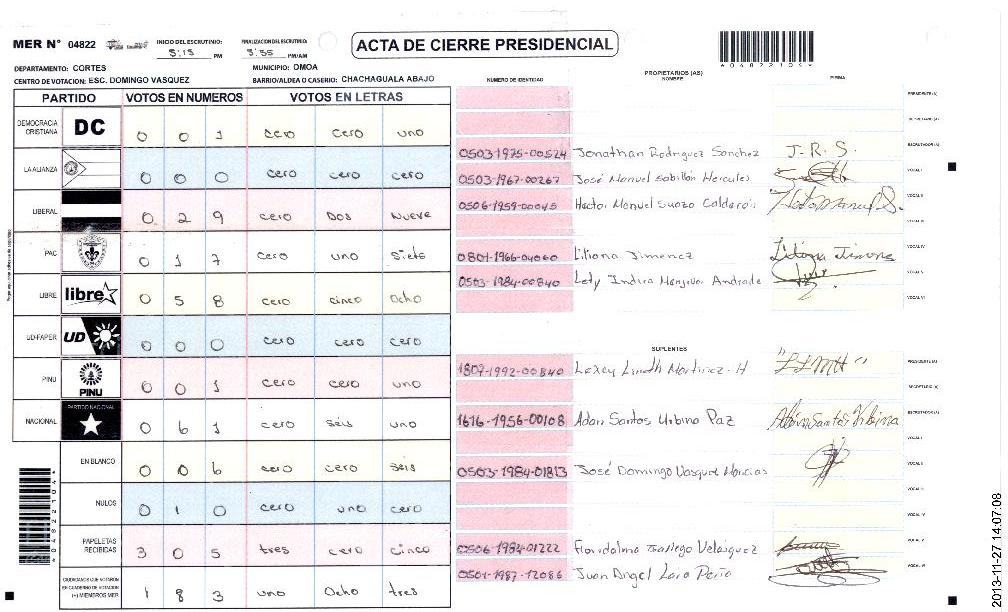 MER N° 04822
INICIO DEL ESCRUTINIO: 5:15 PM
FINALIZACION DEL ESCRUTINIO: 5:55 PM/AM
ACTA DE CIERRE PRESIDENCIAL
4048221044
DEPARTAMENTO: CORTES
MUNICIPIO: OMOA
CENTRO DE VOTACION: ESC. DOMINGO VASQUEZ
BARRIO/ALDEA O CASERIO: CHACHAGUALA ABAJO
PARTIDO VOTOS EN NUMEROS VOTOS EN LETRAS
DEMOCRACIA CRISTIANA DC 0 0 1 cero cero uno
LA ALIANZA 0 0 0 cero cero cero
LIBERAL 0 2 9 cero Dos Nueve
PAC 0 1 7 cero uno Siete
LIBRE libre 0 5 8 cero cinco Ocho
UD-FAPER UD 0 0 0 cero cero cero
PINU PINU 0 0 1 cero cero uno
NACIONAL PARTIDO NACIONAL 0 6 1 cero seis uno
EN BLANCO 0 0 6 cero cero seis
NULOS 0 1 0 cero uno cero
PAPELETAS RECIBIDAS 3 0 5 tres cero cinco
CIUDADANOS QUE VOTARON
EN CUADERNO DE VOTACION
(+) MIEMBROS MER 1 8 3 uno Ocho tres
NUMERO DE IDENTIDAD
PROPIETARIOS (AS)
NOMBRE
FIRMA
PRESIDENTE(A)
SECRETARIO (A)
0503-1975-00524 Jonathan Rodriguez Sanchez J.R.S. ESCRUTADOR (A)
0503-1967-00267 José Manuel Sabillón Hercules VOCAL I
0506-1959-00045 Hector Manuel Suazo Calderón VOCAL II
VOCAL III
0801-1966-04060 Liliana Jimenez VOCAL IV
0503-1984-00840 Lety Indira Menjivar Andrade VOCAL V
VOCAL VI
SUPLENTES
1807-1992-00840 Martinez H "LLMH" PRESIDENTE (A)
SECRETARIO (A)
1616-1956-00108 Adan Santos Urbina Paz ESCRUTADOR(A)
VOCAL I
0503-1984-01813 José Domingo Vasquez VOCAL II
VOCAL III
VOCAL IV
0506-1984-01222 Velasquez VOCAL V
0501-1987-12086 Juan Angel Lara Peña VOCAL VI
2013-11-27 14:07:08